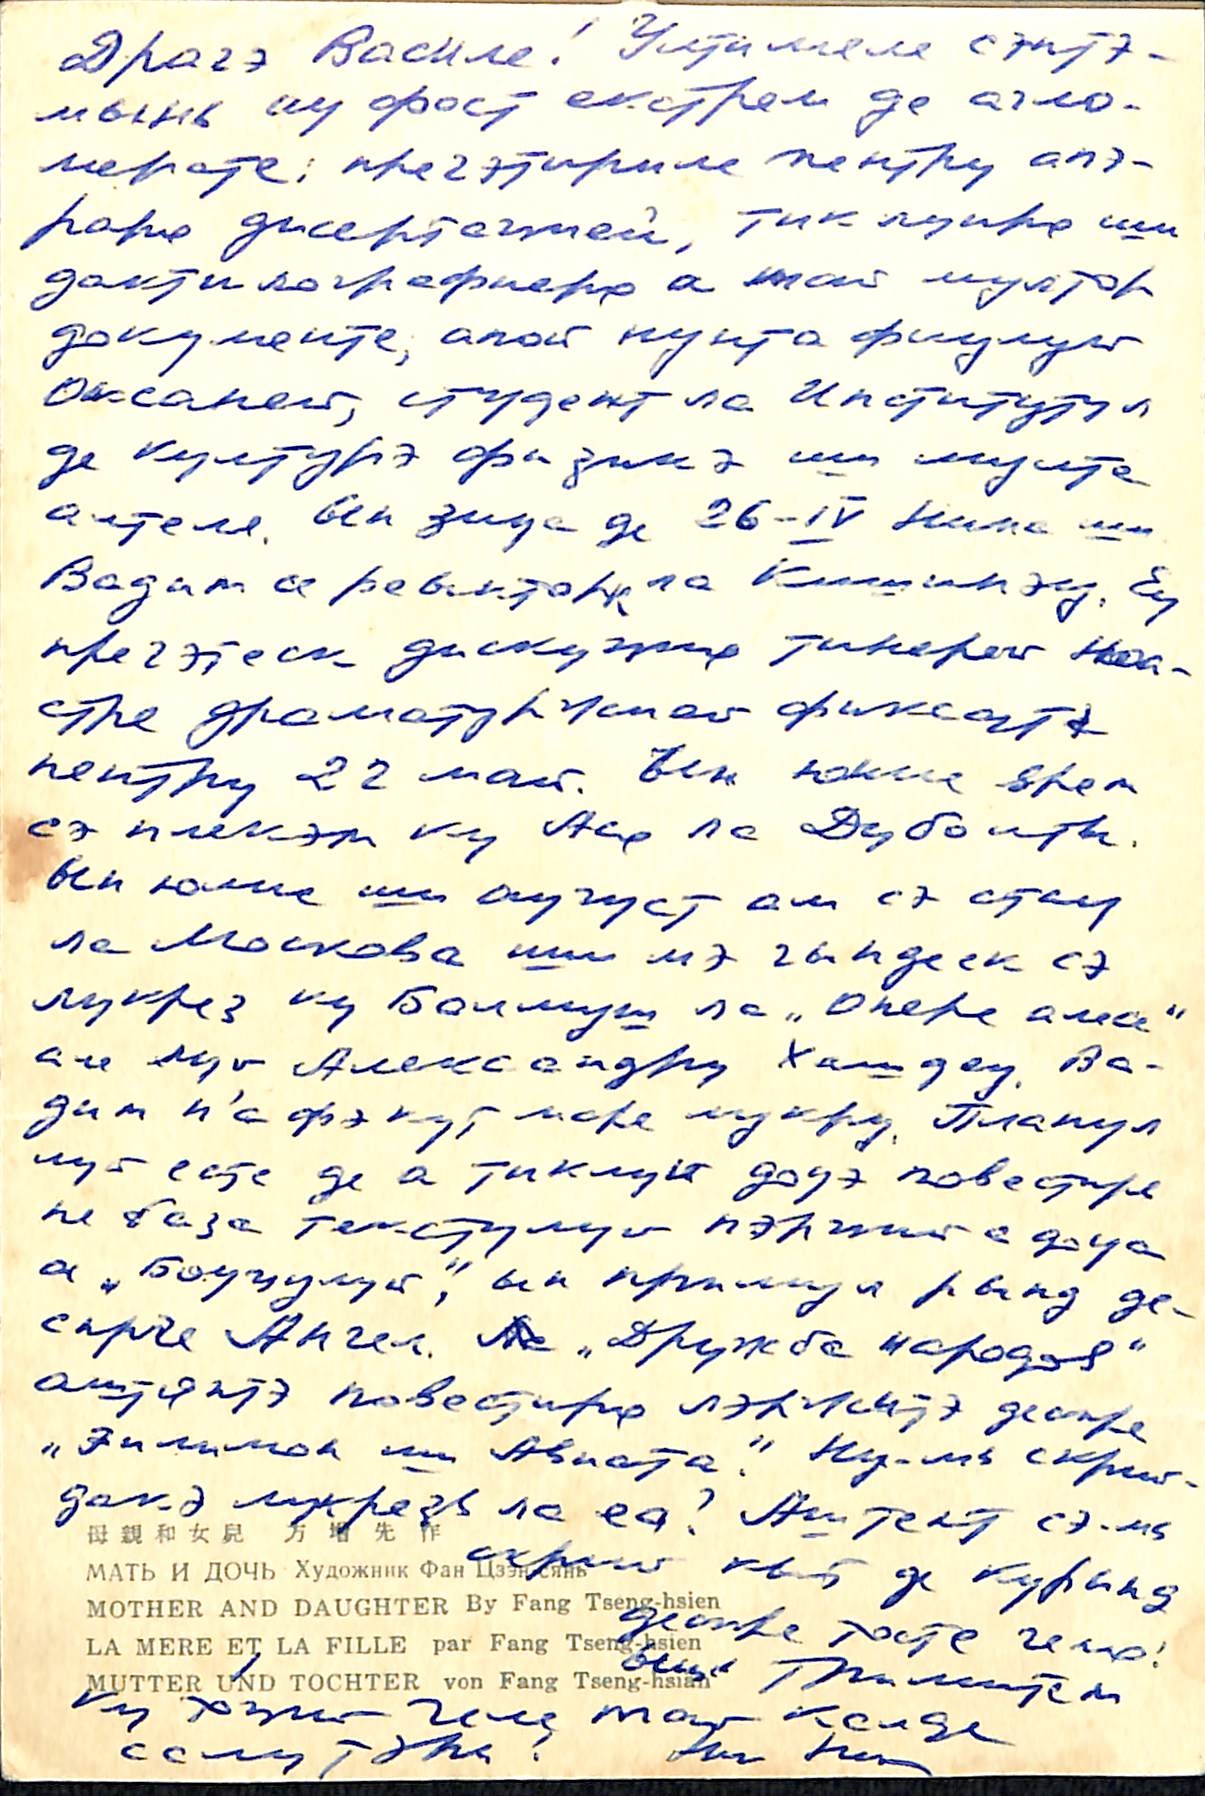 Драгэ Василе! Ултимеле сэптэ-
мынь ау фост екстрем де агло-
мерате: прегэтириле пентру апэ-
раря дисертацией, тиклуиря ши
дактилографиеря а май мултор
документе, апой нунта фиулуй
Оксаней, студент ла Институтул
де културэ физикэ ши мулте
алтеле. Ын зиуа де 26-IV Нина ши
Вадим се реынторк ла Кишинэу. Еу
прегэтеск дискуция тинерей ноа-
стре драматурӂией фиксатэ
пентру 22 май. Ын юние врем
сэ плекэм ку Ася ла Дуболть.
Ын юлие ши аугуст ам сэ стау
ла Москова ши мэ гындеск сэ
лукрез ку Балмуш ла „Опере алесе"
але луй Александру Хаждеу. Ва-
дим н'а фэкут маре лукру. Планул
луй есте де а тиклуи доуэ повестире
пе база текстулуй пэрций а доуа
а „Боуцулуй", ын примул рынд де-
спре Ангел. Ла „Дружба народов"
аштяптэ повестиря лэрӂитэ деспре
„Филимон ши Агната." Ну-мь скрий
дакэ лукрезь ла еа? Аштепт сэ-мь
скрий кыт де курынд
деспре тоате челя!
Ыць тримитем
ку тоций челе май калде
салутэрь!
母親和女兒 方增先作
МАТЬ И ДОЧЬ Художник Фан Цзэн-сянь
MOTHER AND DAUGHTER By Fang Tseng-hsien
LA MERE ET LA FILLE par Fang Tseng-hsien
MUTTER UND TOCHTER von Fang Tseng-hsian